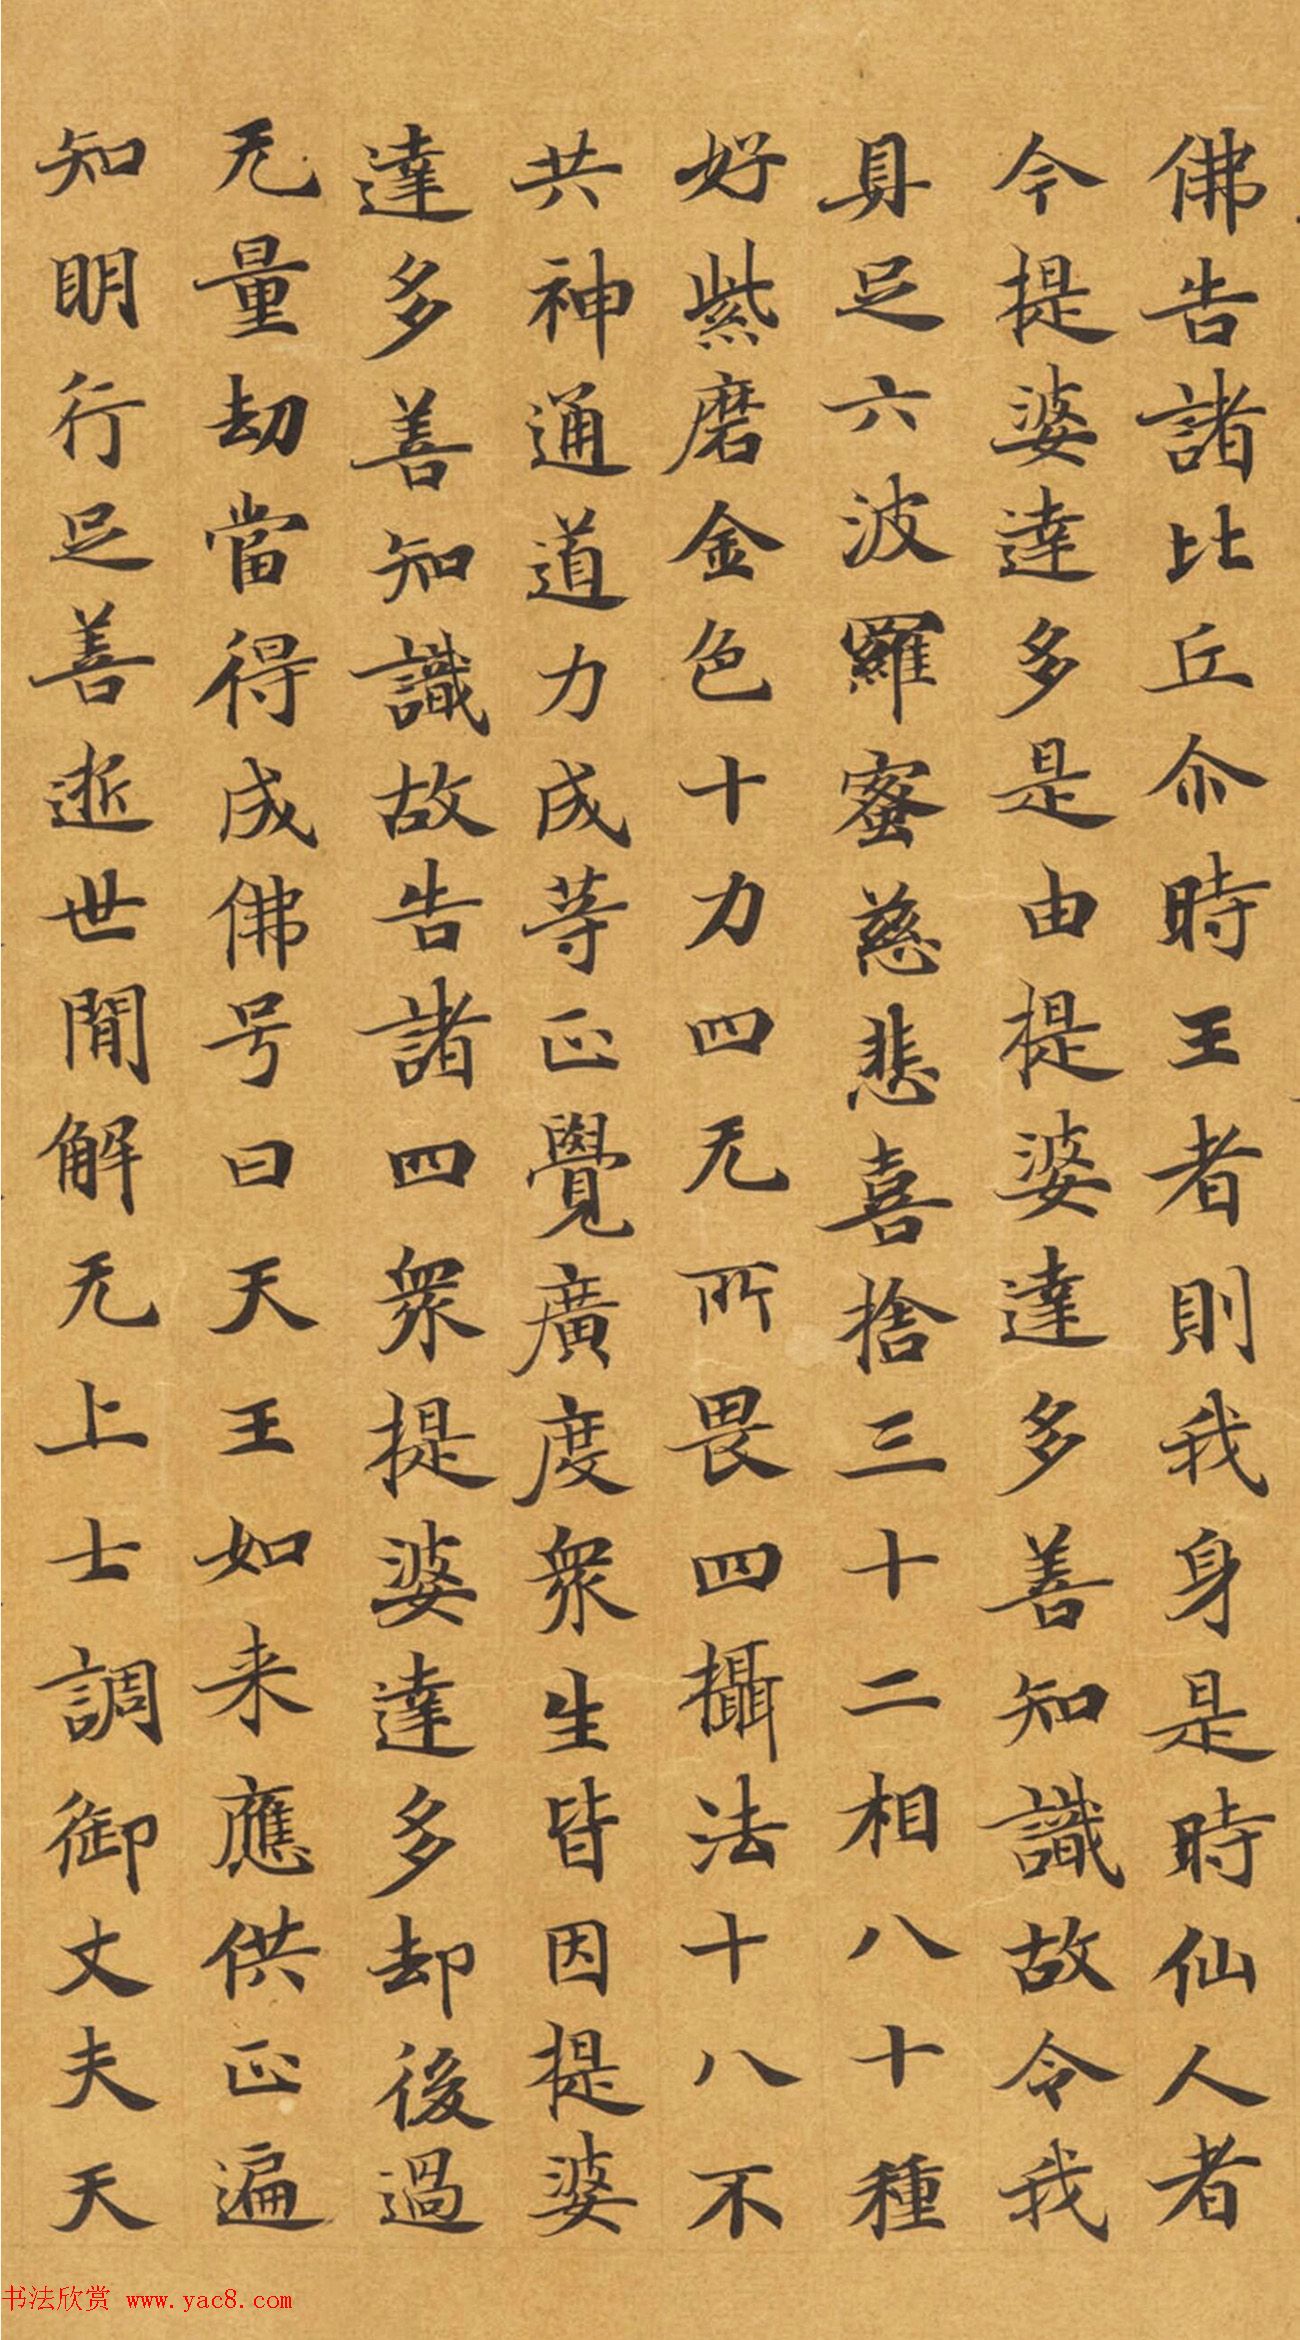 佛告諸比丘尒時王者則我身是時仙人者
今提婆達多是由提婆達多善知識故令我
具足六波羅蜜慈悲喜捨三十二相八十種
好紫磨金色十力四无所畏四攝法十八不
共神通道力成等正覺廣度衆生皆因提婆
達多善知識故告諸四衆提婆達多却後過
无量劫當得成佛号曰天王如来應供正遍
知明行足善逝世閒解无上士調御丈夫天
书法欣赏 www.yac8.com